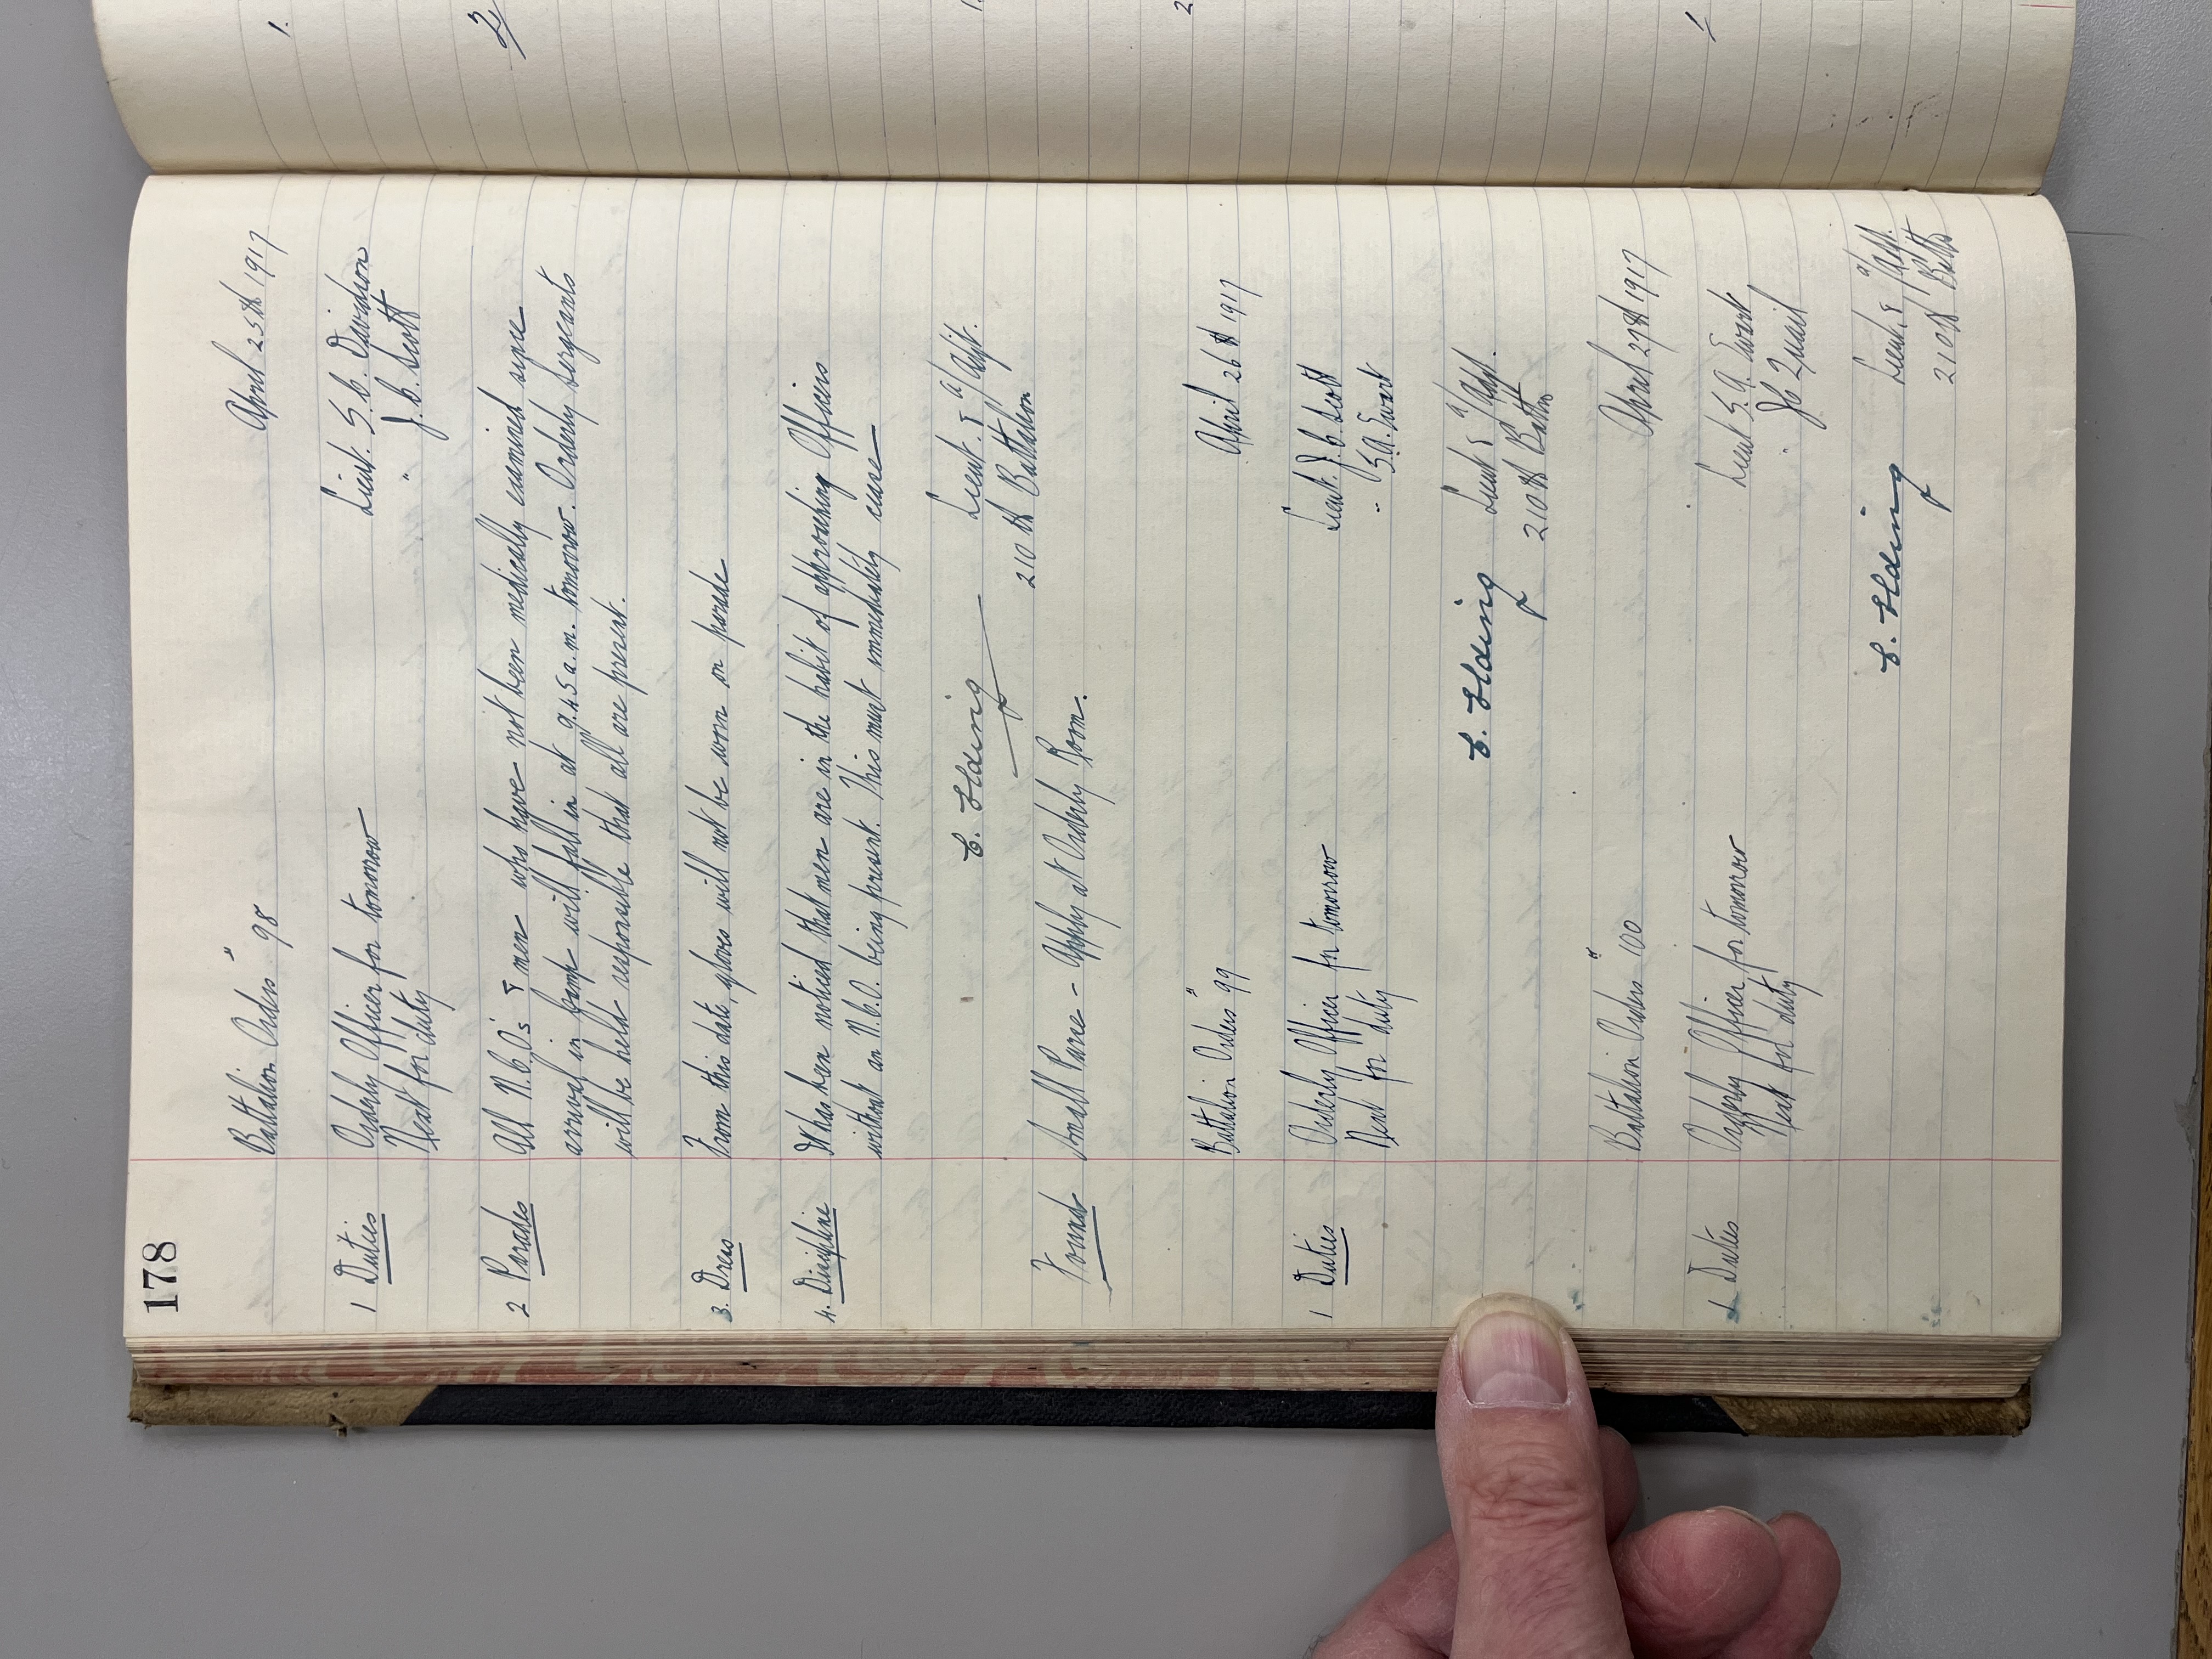 178
Battalion Orders " 98 April 25th 1917
1 Duties Orderly Officer for tomorrow Lieut. S. C. Davidson
Next for duty " J. C. Scott
2 Parades All N.C.O's & men who have not been medically examined since
arrival in Camp will fall in at 9.45 a.m. tomorrow. Orderly Sergeants
will be held responsible that all are present.
3. Dress From this date, gloves will not be worn on parade
4. Discipline It has been noticed that men are in the habit of approaching Officers
without an N.C.O. being present. This must immediately cease
Lieut. & a/Adjt.
210th Battalion
Found Small Purse - Apply at Orderly Room.
Battalion Orders " 99 April 26th 1917
1 Duties Orderly Officer for tomorrow Lieut. J. C. Scott
Next for duty " S. A. Ewart
Lieut & a/Adjt.
210th Battn
Battalion Orders " 100 April 27th 1917
1 Duties Orderly Officer for tomorrow Lieut S. A. Ewart
Next for duty "
Lieut. & a/Adjt.
210th Battn
1.
2/
1.
2
1